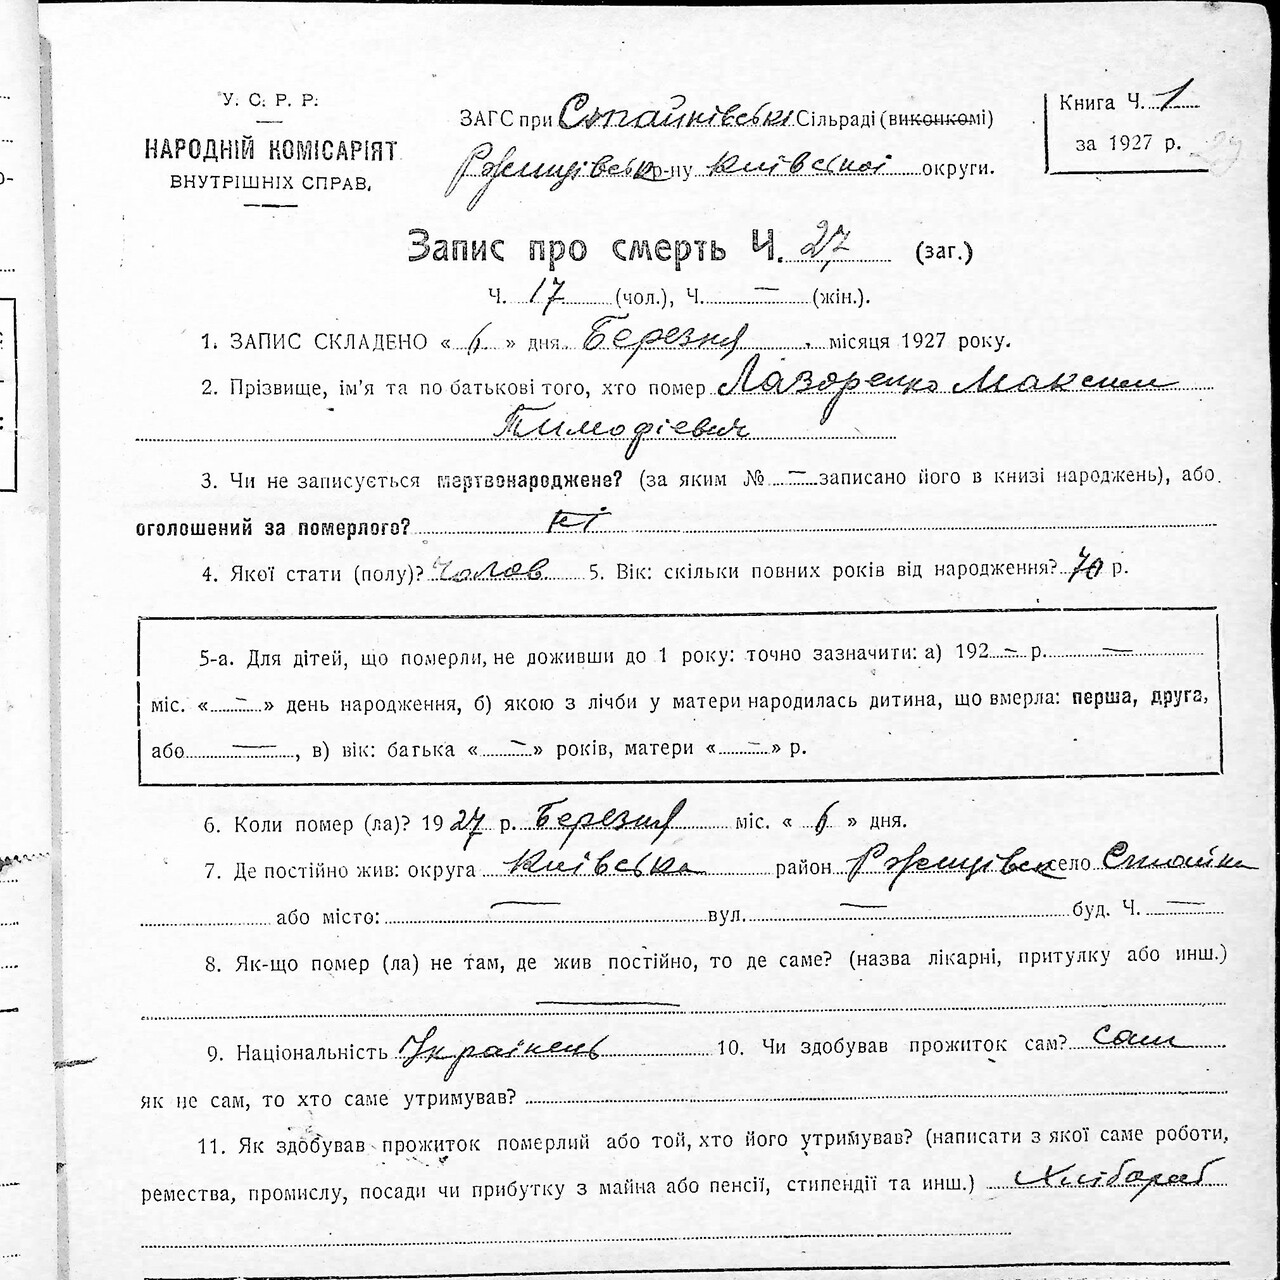 У. С. Р. Р.
НАРОДНІЙ КОМІСАРІЯТ
ВНУТРІШНІХ СПРАВ.
ЗАГС при Стайківські Сільраді (виконкомі)
Ржищівськ р-ну Київської округи.
Книга Ч. 1
за 1927 р.
Запис про смерть Ч. 27 (заг.)
Ч. 17 (чол.), Ч. — (жін.).
1. ЗАПИС СКЛАДЕНО « 6 » дня Березня місяця 1927 року.
2. Прізвище, ім'я та по батькові того, хто помер Лазоренко Максим
Тимофієвич
3. Чи не записується мертвонароджене? (за яким № — записано його в книзі народжень), або
оголошений за померлого? ні
4. Якої стати (полу)? Чолов 5. Вік: скільки повних років від народження? 70 р.
5-а. Для дітей, що померли, не доживши до 1 року: точно зазначити: а) 192 — р. —
міс. « — » день народження, б) якою з лічби у матери народилась дитина, що вмерла: перша, друга,
або —, в) вік: батька « — » років, матери « — » р.
6. Коли помер (ла)? 1927 р. Березня міс. « 6 » дня.
7. Де постійно жив: округа Київська район Ржищівськ село Стайки
або місто: — вул. — буд. Ч. —
8. Як-що помер (ла) не там, де жив постійно, то де саме? (назва лікарні, притулку або инш.)
—
9. Національність Українець 10. Чи здобував прожиток сам? сам
як не сам, то хто саме утримував?
11. Як здобував прожиток померлий або той, хто його утримував? (написати з якої саме роботи,
ремества, промислу, посади чи прибутку з майна або пенсії, стипендії та инш.) Хлібороб